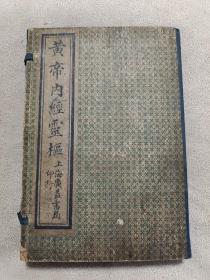 黃帝內經靈樞
上海廣益書局
印行